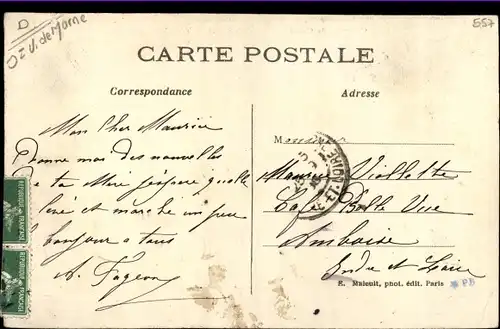 D
557
Dt V. de Marne
CARTE POSTALE
Correspondance
Adresse
Mon cher Maurice
Donne moi des nouvelles
de ta Mère j'espère qu'elle
et marche un peu
bonjour a tous
A. Fageon
Monsieur
Maurice Violette
Café Belle Vue
Amboise
Indre et Loire
E. Malcuit, phot. édit. Paris
PD